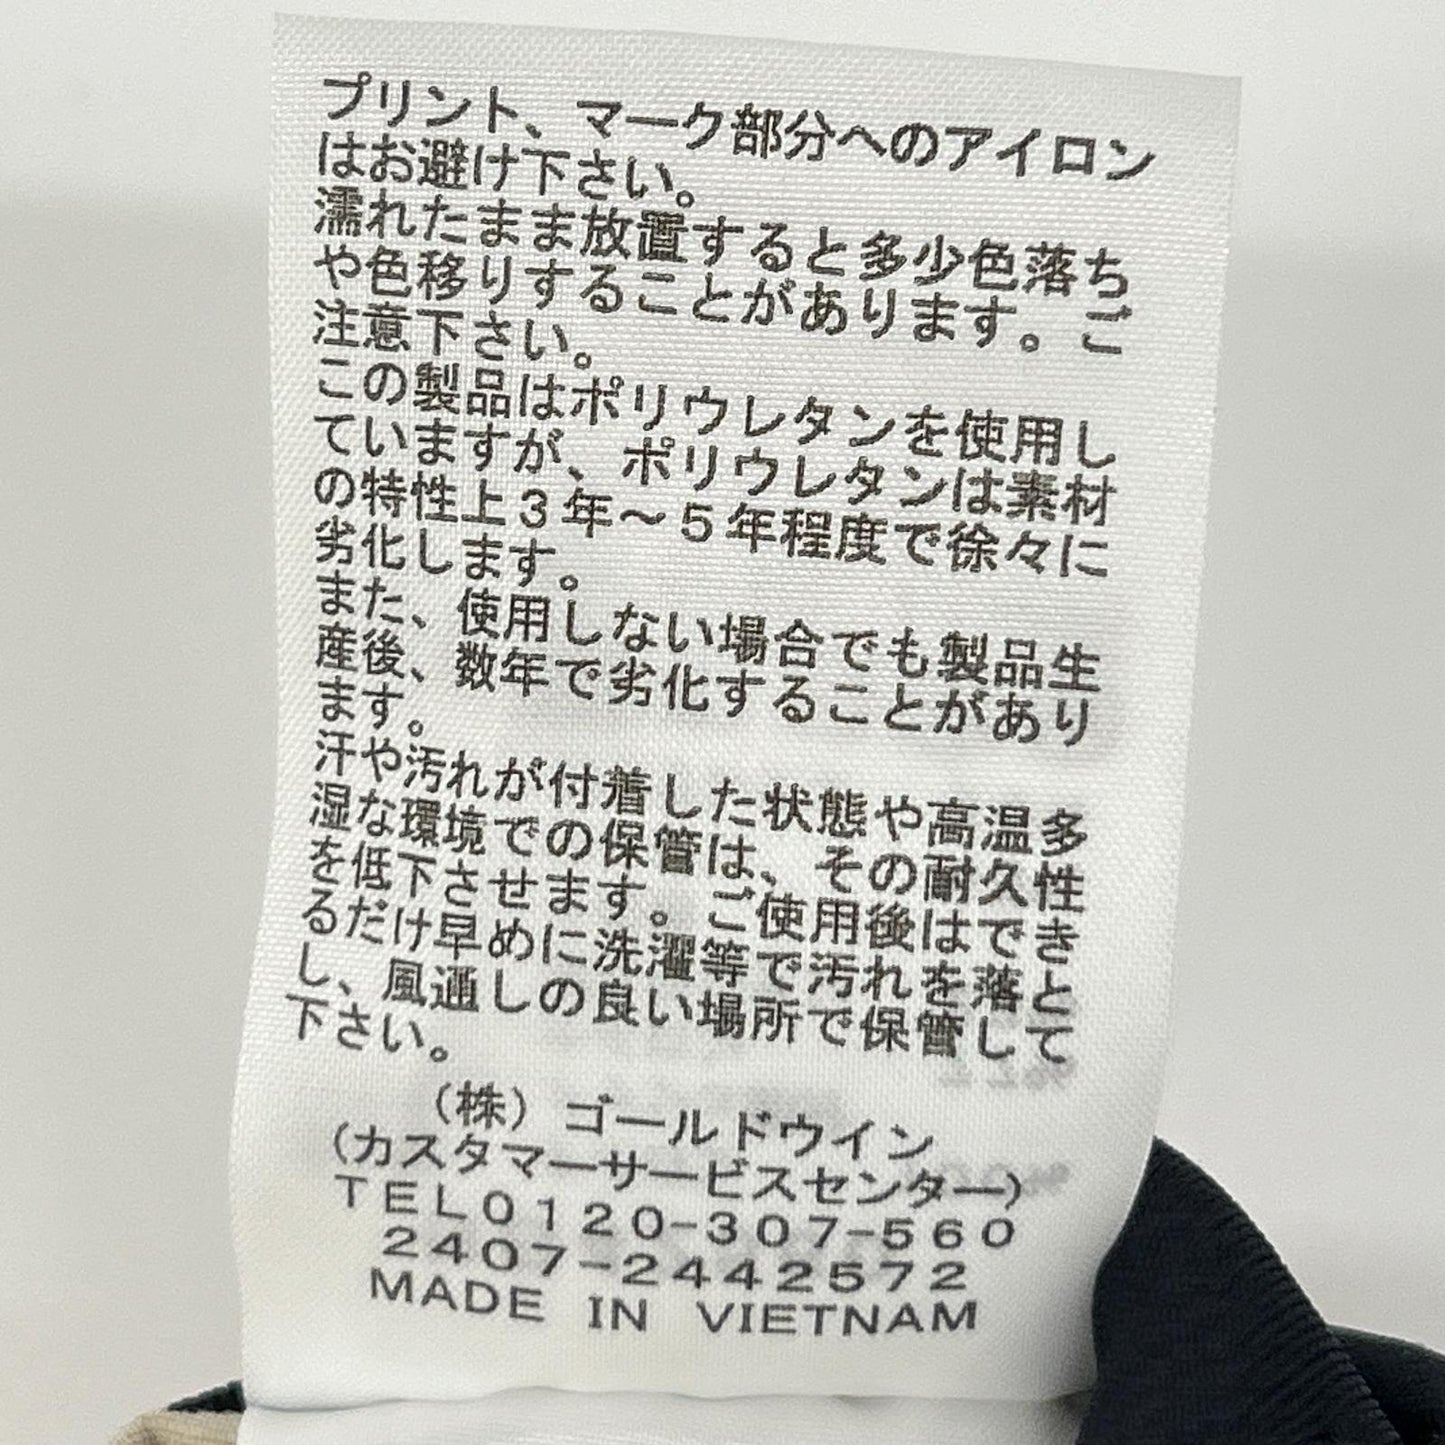 プリント、マーク部分へのアイロン
はお避け下さい。
濡れたまま放置すると多少色落ち
や色移りすることがあります。ご
注意下さい。
この製品はポリウレタンを使用し
ていますが、ポリウレタンは素材
の特性上3年～5年程度で徐々に
劣化します。
また、使用しない場合でも製品生
産後、数年で劣化することがあり
ます。
汗や汚れが付着した状態や高温多
湿な環境での保管は、その耐久性
を低下させます。ご使用後はでき
るだけ早めに洗濯等で汚れを落と
し、風通しの良い場所で保管して
下さい。
(株)ゴールドウイン
(カスタマーサービスセンター)
TEL0120-307-560
2407-2442572
MADE IN VIETNAM